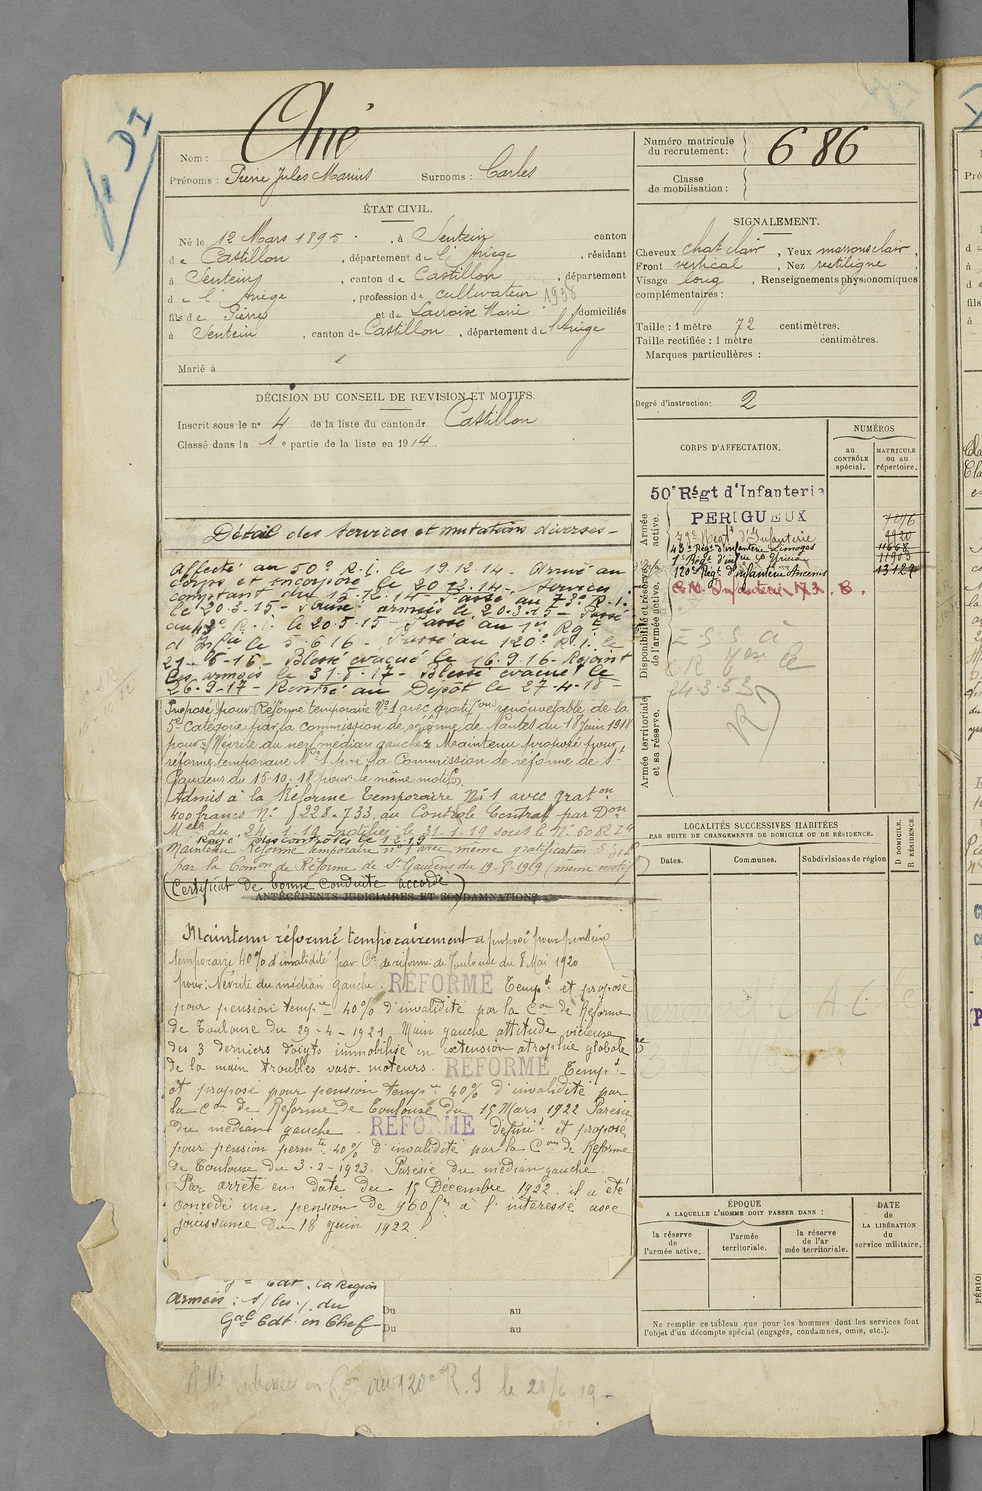 Nom : Anè
Prénoms : Pierre Jules Marius Surnoms : Carles
Numéro matricule du recrutement : 686
Classe de mobilisation :
ÉTAT CIVIL.
Né le 12 Mars 1895, à Sentein canton
de Castillon, département de l'Ariège, résidant
à Sentein, canton de Castillon, département
de l'Ariège, profession de cultivateur 1938
fils de Pierre et de Marie, domiciliés
à Sentein, canton de Castillon, département de l'Ariège
Marié à
SIGNALEMENT.
Cheveux chat clair, Yeux marrons clair,
Front vertical, Nez rectiligne,
Visage long, Renseignements physionomiques
complémentaires :
Taille : 1 mètre 72 centimètres.
Taille rectifiée : 1 mètre centimètres.
Marques particulières :
Degré d'instruction : 2
DÉCISION DU CONSEIL DE REVISION ET MOTIFS.
Inscrit sous le n° 4 de la liste du canton de Castillon
Classé dans la 1e partie de la liste en 1914.
Détail des services et mutations diverses –
Affecté au 50e R.I. le 19.12.14 – Arrivé au
corps et incorporé le 20.12.14 – Services
comptant du 15.12.14 – Passé au 73e R.I.
le 20.3.15 – armées le 20.3.15 – Passé
au 43e R.I. le 20.5.15 – Passé au 1er Rgt
d'Infie le 5.6.16 – Passé au 120e R.I. le
21-6-16 – Blessé évacué le 16.9.16 – Rejoint
les armées le 31.8.17 – Blessé évacué le
26.9.17 – Rentré au Dépôt le 27-4-18 –
Proposé pour Réforme temporaire N° 1 avec gratifon renouvelable de la
5e Catégorie par la commission de réforme de Nantes du 18 Juin 1918
pour : Névrite du nerf médian gauche. Maintenu proposé pour
réforme temporaire N° 1 par la Commission de réforme de St
Gaudens du 15-10-18 pour le même motif.
Admis à la Réforme temporaire N° 1 avec graton
400 francs N° 228.733 au Contrôle Central par Don
Melle du 24.1.19 notifiée le 31-1-19 sous le N° 6082
Rayé des contrôles le
Maintenu Réforme temporaire n° 1 avec même gratification
par la Comon de Réforme de St Gaudens du 19-5-1919 (même motif)
(Certificat de bonne conduite accordé)
ANTÉCÉDENTS JUDICIAIRES ET CONDAMNATIONS.
Maintenu réformé temporairement a proposé pour pension
temporaire 40% d'invalidité par Cn de réforme de Toulouse du 8 Mai 1920
pour : Névrite du médian gauche. RÉFORMÉ Tempt et proposé
pour pension tempre 40% d'invalidité par la Con de Réforme
de Toulouse du 29-4-1921. Main gauche attitude vicieuse
des 3 derniers doigts immobilisé en extension atrophie globale
de la main troubles vaso-moteurs. RÉFORMÉ Tempt
et proposé pour pension tempre 40% d'invalidité par
la Con de Réforme de Toulouse du 15 Mars 1922 Parésie
du médian gauche. RÉFORMÉ définit et proposé
pour pension permte 40% d'invalidité par la Con de Réforme
de Toulouse du 3-2-1923. Parésie du médian gauche.
Par arrêté en date du 15 Décembre 1922 il a été
concédé une pension de 960 frs à l'intéressé avec
jouissance du 18 juin 1922.
Gal Cdt. la Région
Armées : du
Gal Cdt. en Chef
Du au
Du au
au 120e R.I le
CORPS D'AFFECTATION.
NUMÉROS
au CONTRÔLE spécial.
MATRICULE ou au répertoire.
Armée active.
Disponibilité et réserve de l'armée active.
Armée territoriale et sa réserve.
50e Régt d'Infanterie
PERIGUEUX
73e Régt d'Infanterie
43e Régt d'Infanterie Limoges
1er Régt d'Infie
120e Régt d'Infanterie Ancenis
13127
C.M. Infanterie 173. B.
24.3.53
LOCALITÉS SUCCESSIVES HABITÉES
PAR SUITE DE CHANGEMENTS DE DOMICILE OU DE RÉSIDENCE.
Dates.
Communes.
Subdivisions de région
D DOMICILE.
R RÉSIDENCE.
ÉPOQUE
A LAQUELLE L'HOMME DOIT PASSER DANS :
la réserve de l'armée active.
l'armée territoriale.
la réserve de l'armée territoriale.
DATE de LA LIBÉRATION du service militaire.
Ne remplir ce tableau que pour les hommes dont les services font
l'objet d'un décompte spécial (engagés, condamnés, omis, etc.).